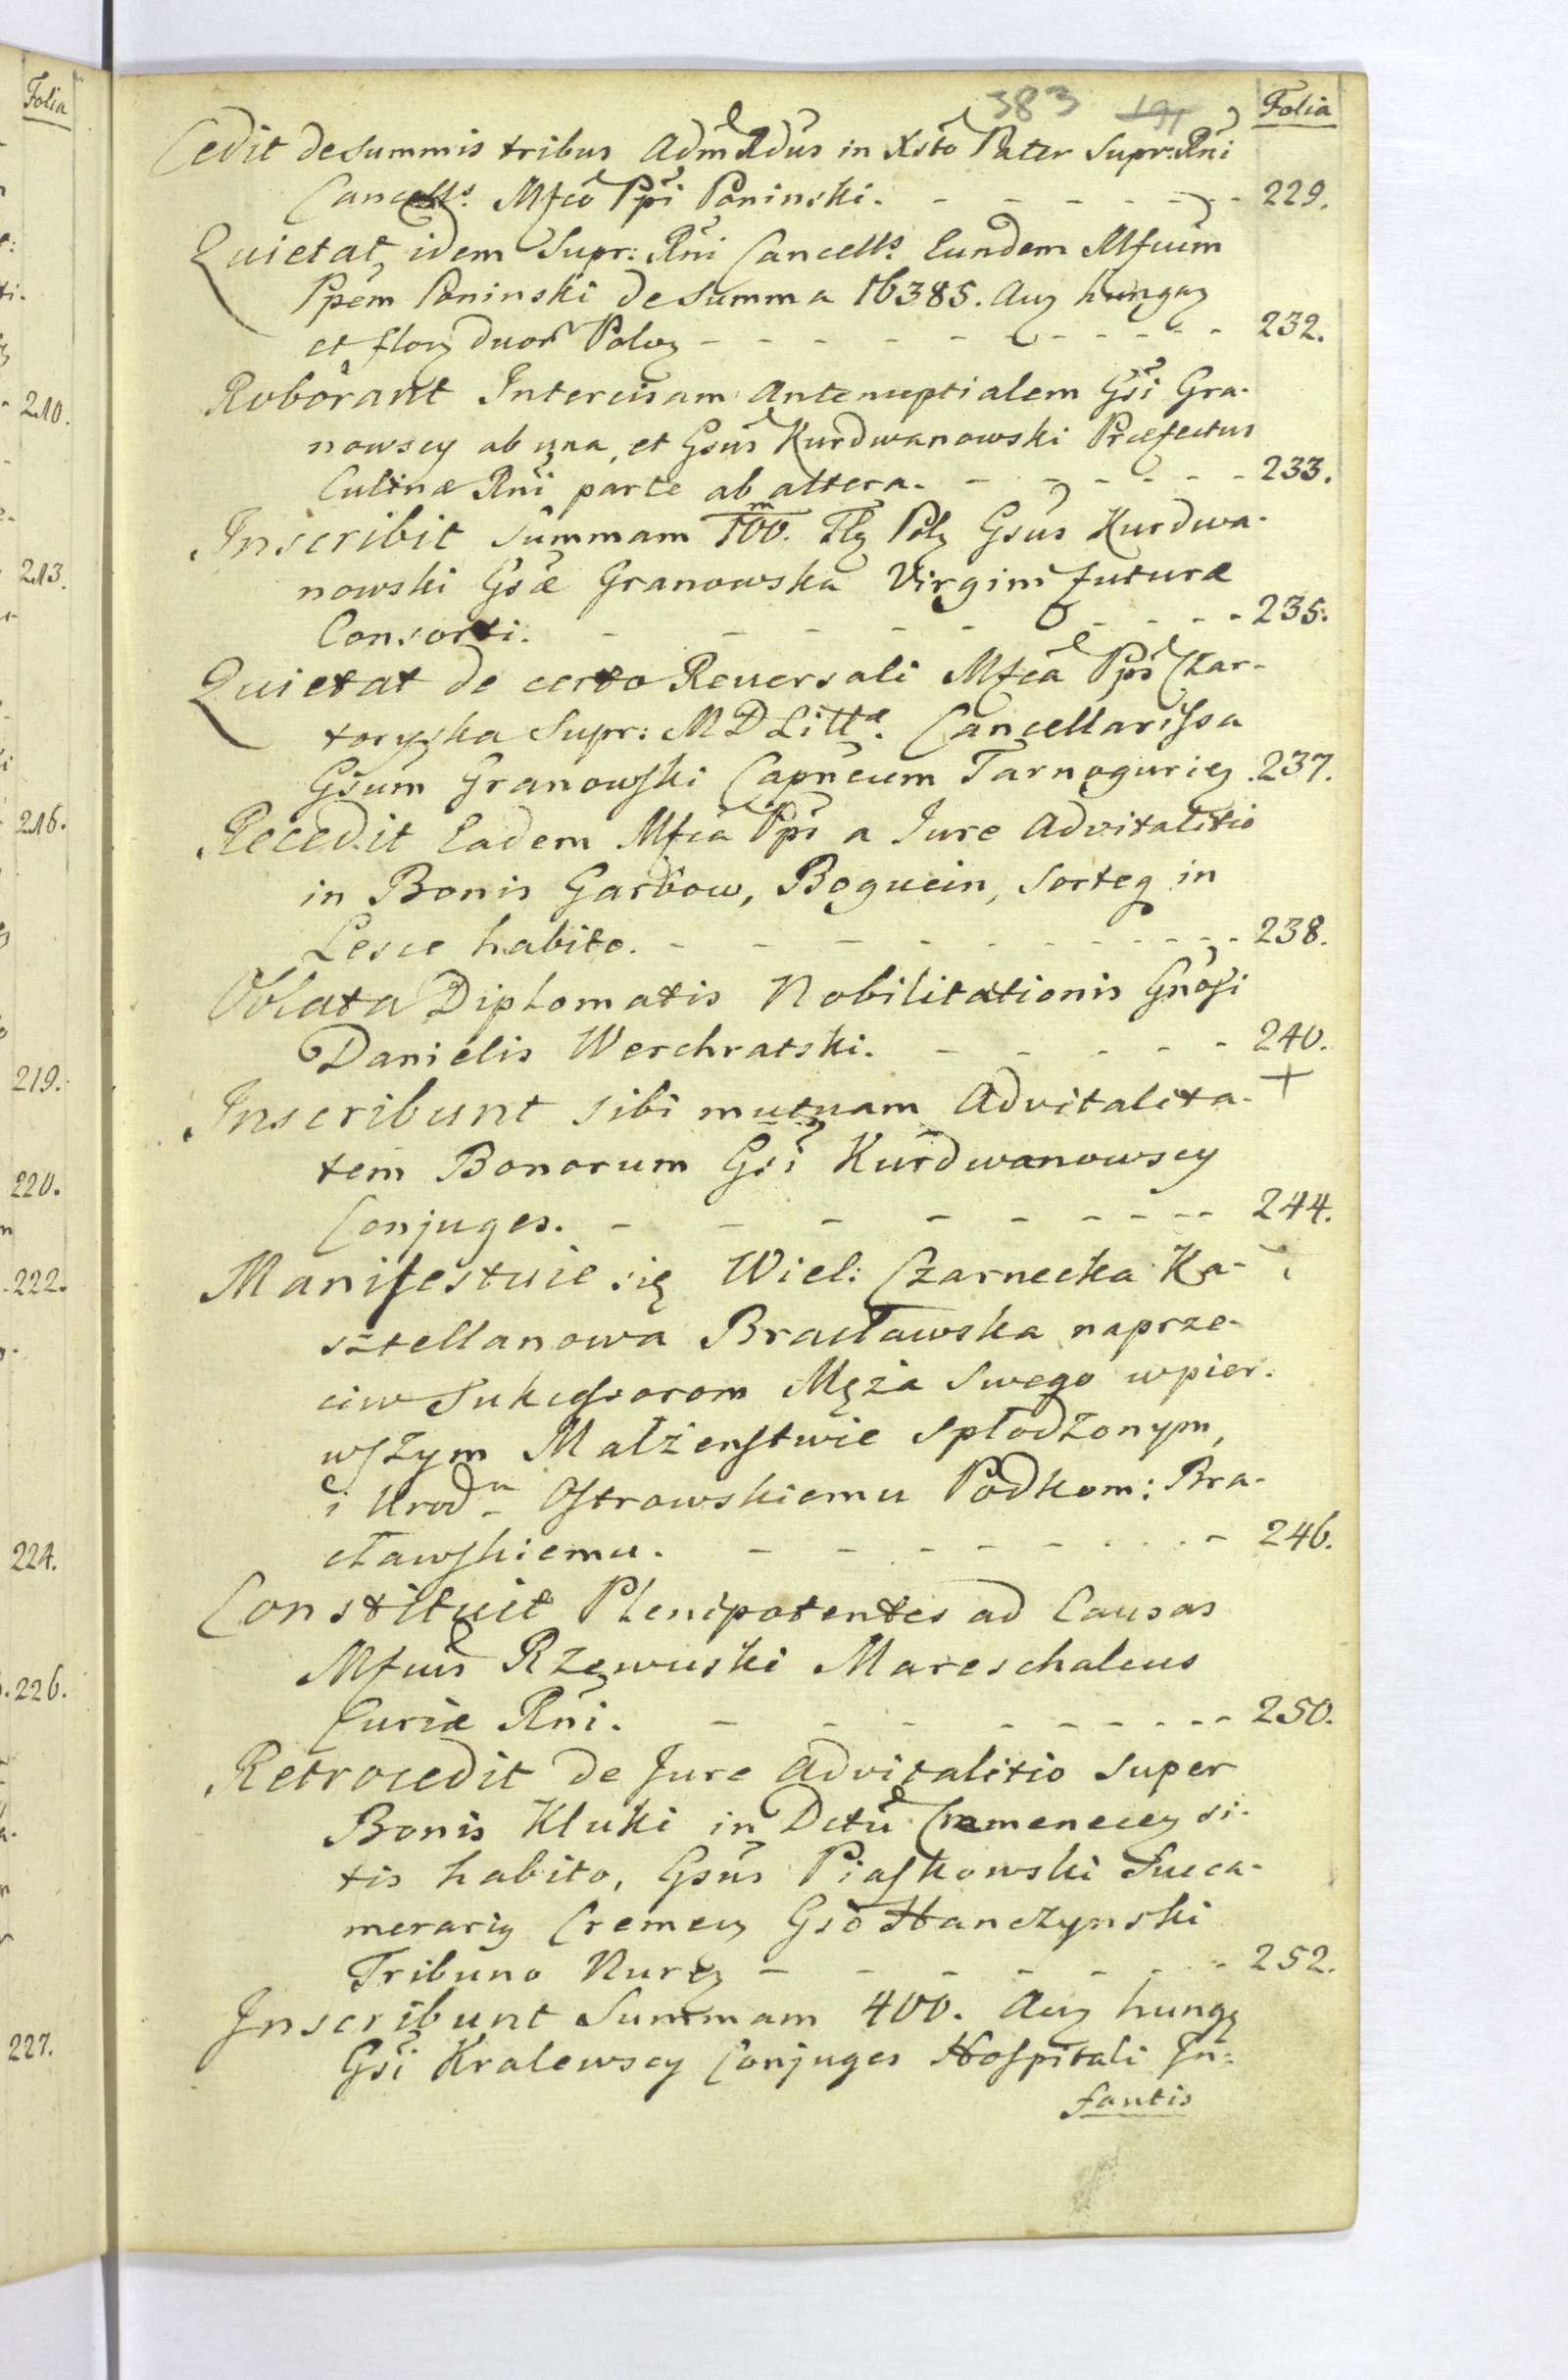 Folia
210.
213.
216.
219.
220.
222.
224.
226.
227.
383
Folia
Cedit de summis tribus AdmRdus in Xsto Pater Supr: Rni
Cancells. Mfco Ppi Poninski. - - - - - - - 229.
Quietat idem Supr: Rni Cancells. Eundem Mfcum
Ppem Poninski de Summa 16385. Auꝫ hungaꝫ
et floꝫ duor Poloꝫ - - - - - - - - - - 232.
Roborant Intercisam Antenuptialem Gsi Gra-
nowscy ab una, et Gsus Kurdwanowski Præfectus
Culinæ Rni parte ab altera. - - - - - - 233.
Inscribit Summam 100.m Flꝫ Polꝫ Gsus Kurdwa-
nowski Gsæ Granowska Virgini futuræ
Consorti. - - - - - - - - - 235.
Quietat de certo Reversali Mfca Pps Czar-
toryska Supr: M D Litt. Cancellarissa
Gsum Granowski Capneum Tarnoguricꝫ. 237.
Recedit Eadem Mfca Pps a Jure Advitalitio
in Bonis Garbow, Bogucin, Sorteq in
Lesce habito. - - - - - - - - - - 238.
Oblata Diplomatis Nobilitationis Gnosi
Danielis Werchratski. - - - - - - 240.
+
Inscribunt sibi mutuam Advitalita-
tem Bonorum Gsi Kurdwanowscy
Conjuges. - - - - - - - - - 244.
Manifestuie się Wiel: Czarnecka Ka-
sztellanowa Bracławska naprze-
ciw Sukcessorom Męża Swego wpier-
wszym Małżenstwie Spłodzonym,
i Urod. Ostrowskiemu Podkom: Bra-
cławskiemu. - - - - - - - - - - 246.
Constituit Plenipotentes ad Causas
Mfcus Rzewuski Mareschalcus
Curiæ Rni. - - - - - - - - - - 250.
Retrocedit de Jure Advitalitio super
Bonis Kluki in Dctu Cremenecꝫ si-
tis habito, Gsus Piaskowski Succa-
merariꝫ Cremenꝫ Gso Hanczynski
Tribuno Nurꝫ - - - - - - - - 252.
Inscribunt Summam 400. Auꝫ hungꝫ
Gsi Kralewscy Conjuges Hospitali In-
fantis